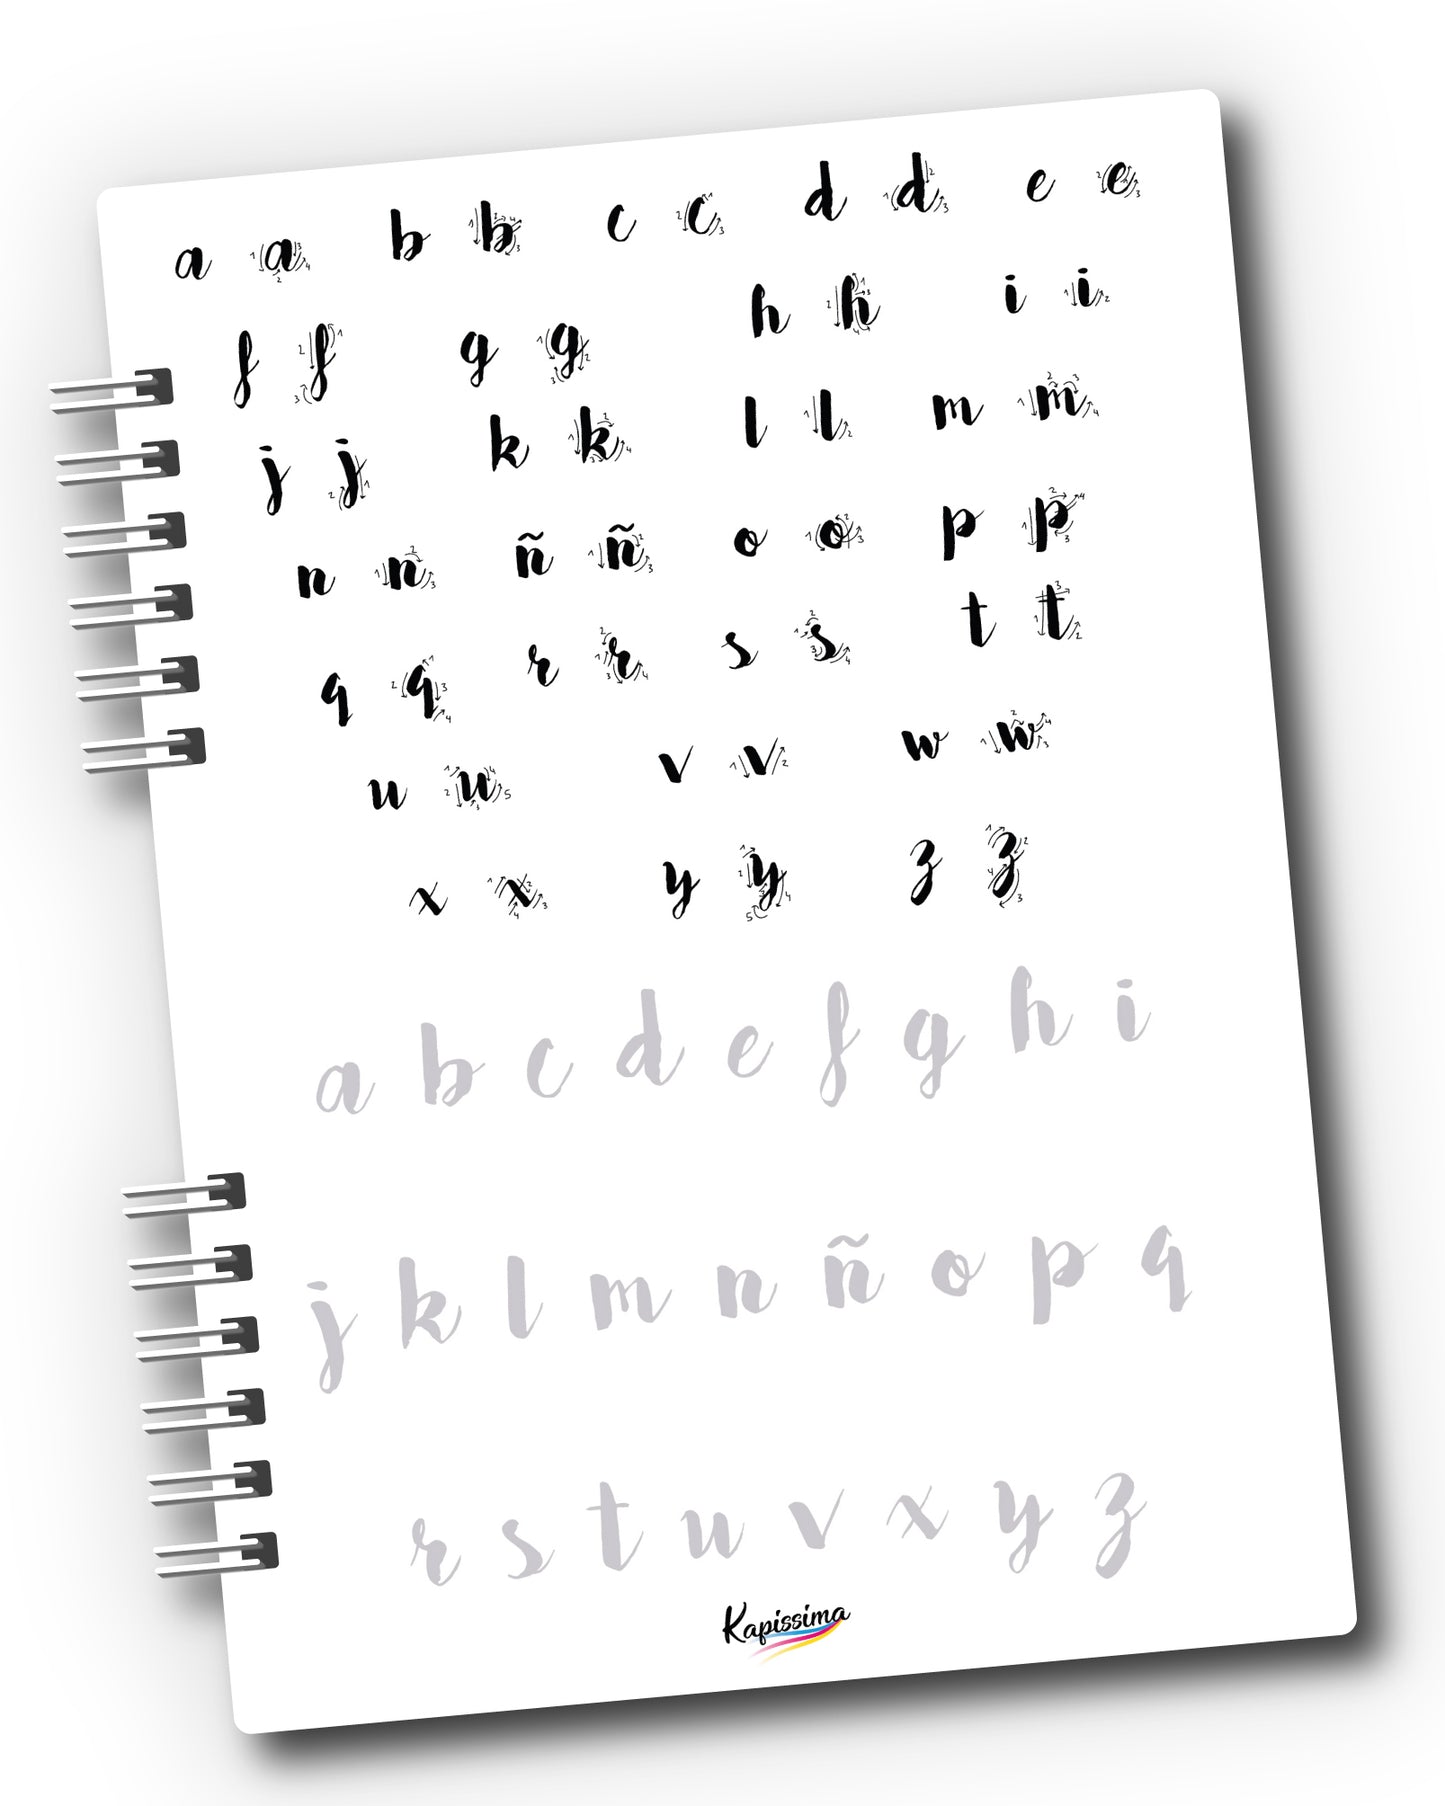 a a b b c c d d e e
f f g g h h i i
j j k k l l m m
n n ñ ñ o o p p
q q r r s s t t
u u v v w w
x x y y z z
a b c d e f g h i
j k l m n ñ o p q
r s t u v x y z
Kapissima